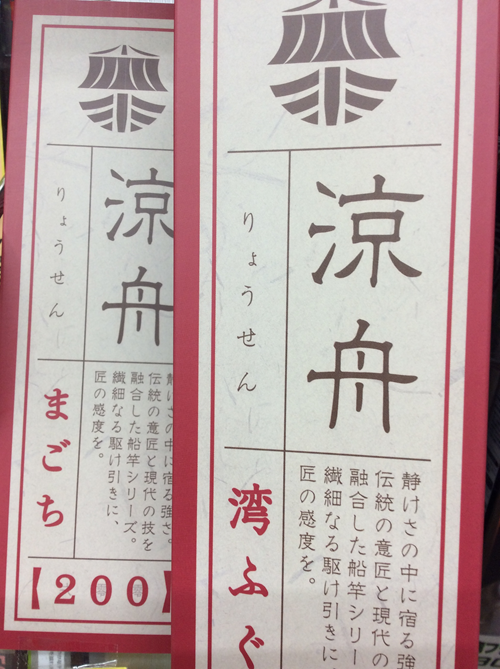 涼舟
りょうせん
静けさの中に宿る強
伝統の意匠と現代の
融合した船竿シリー
繊細なる駆け引きに
匠の感度を。
湾ふぐ
涼舟
りょうせん
静けさの中に宿る強さ。
伝統の意匠と現代の技を
融合した船竿シリーズ。
繊細なる駆け引きに、
匠の感度を。
まごち
【200】